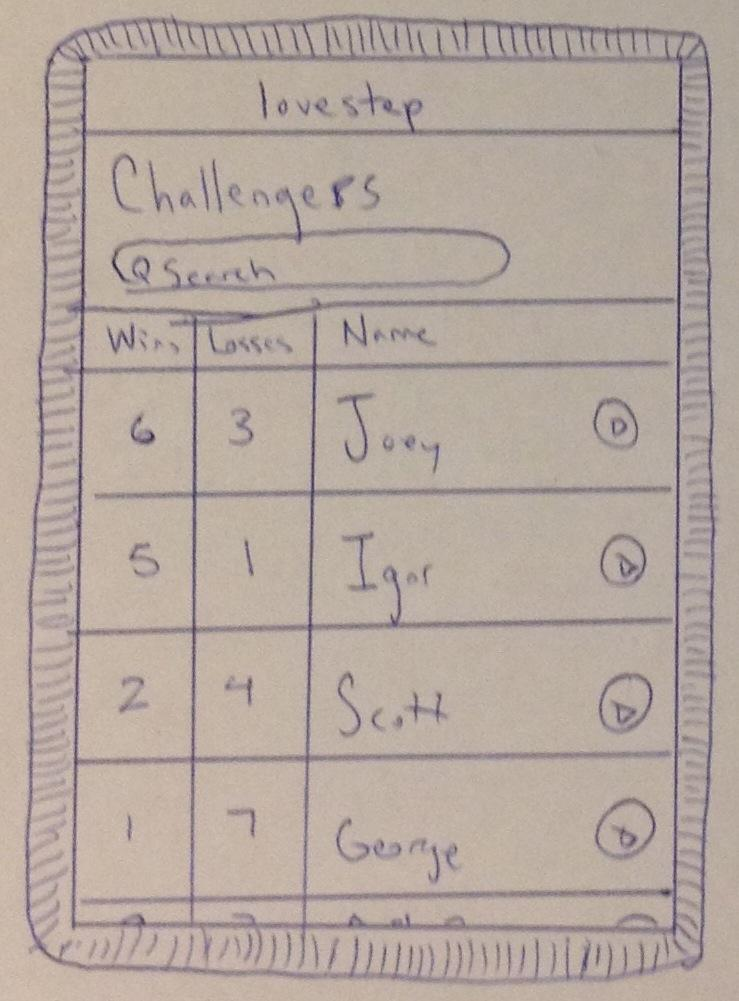 lovestep
Challengers
Search
Wins Losses Name
6 3 Joey
5 1 Igor
2 4 Scott
1 7 George